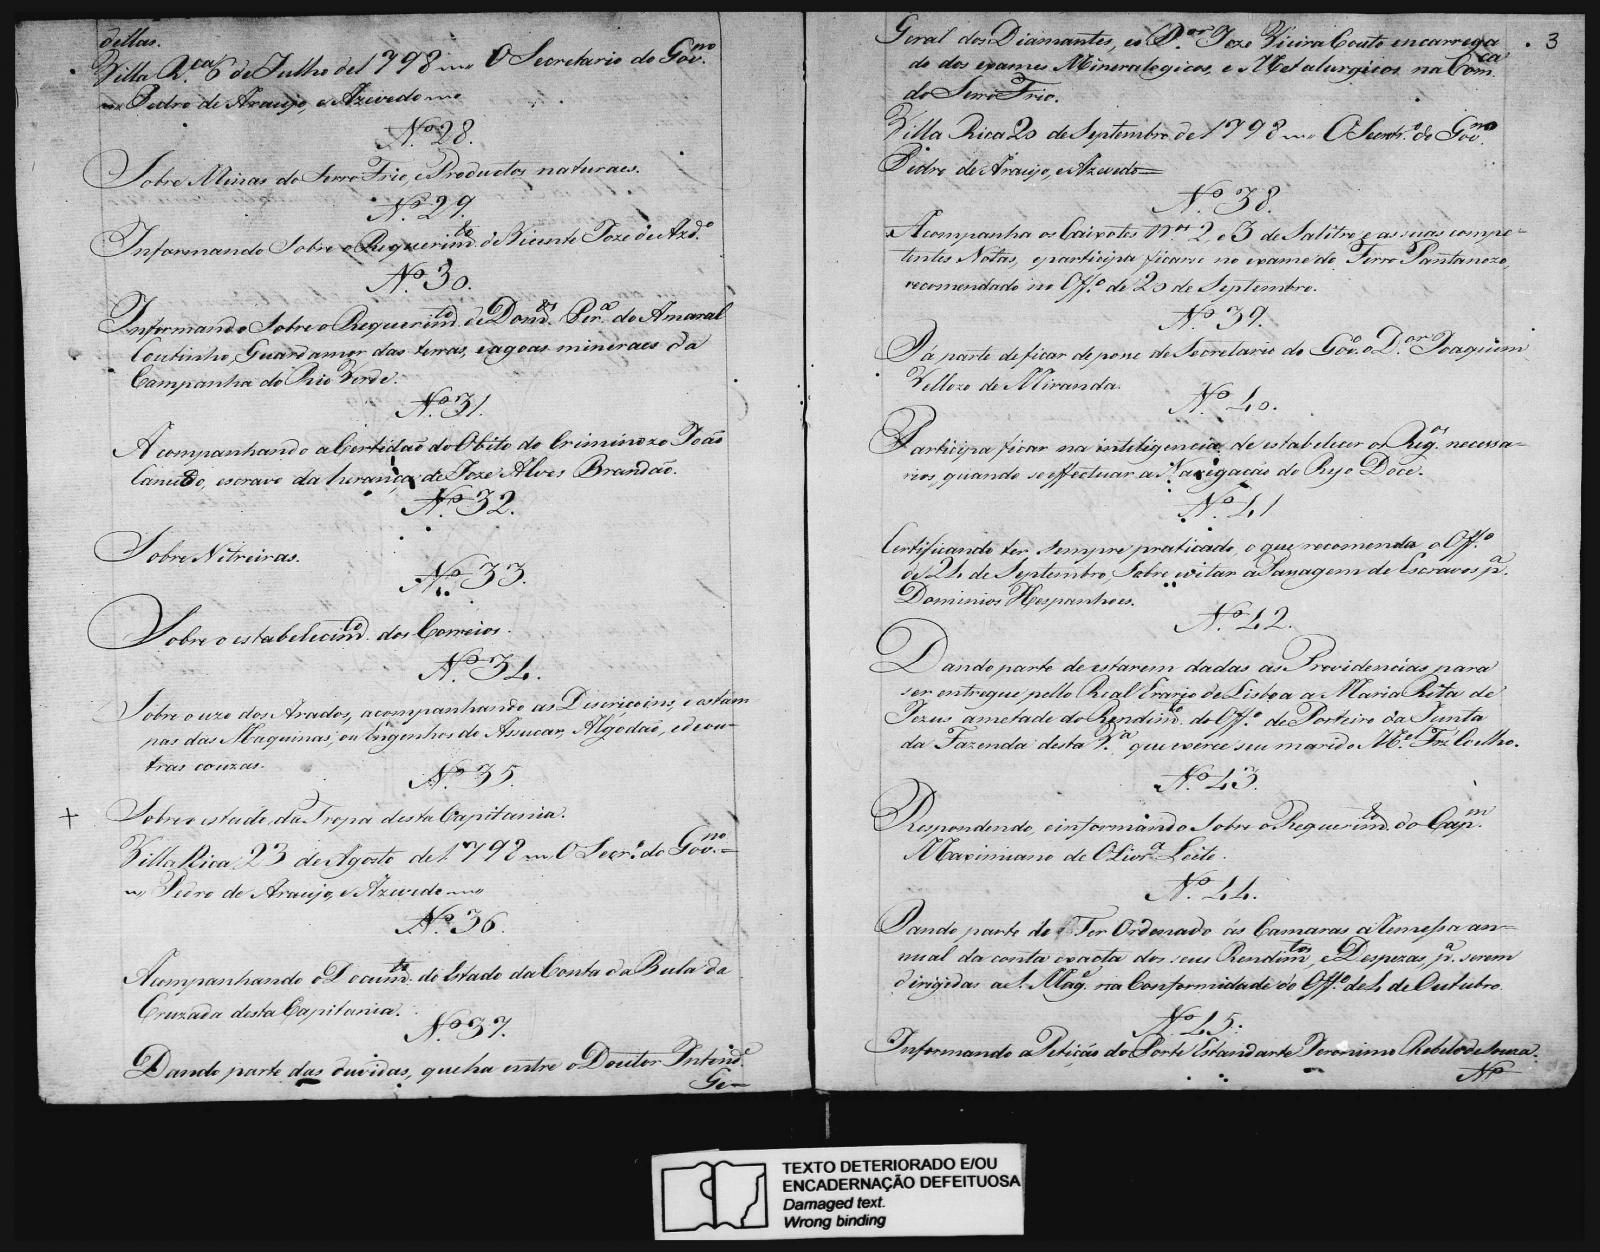 dellas.
Villa R.ca 6 de Julho de 1798 O Secretario do Gov.no
Pedro de Araujo, e Azevedo
N.º 28.
Sobre Minas do Serro Frio, e Productos naturaes.
N.º 29.
Informando Sobre o Requerim.to de Vicente Joze de Azd.º
N.º 30.
Informando Sobre o Requerim.to de Dom.os Per.ª do Amaral
Coutinho, Guardamor das terras, e agoas mineraes da
Campanha do Rio Verde.
N.º 31.
Acompanhando a Certidaõ do Obito do Criminozo Joaõ
escravo da herança de Joze Alves Brandaõ.
N.º 32.
Sobre Nitreiras.
N.º 33.
Sobre o estabelecim.to dos Correios.
N.º 34.
Sobre o uzo dos Arados, acompanhando as Discriçoins, e estam-
pas das Maquinas, ou Engenhos de Assucar, Algodaõ, e de ou-
tras couzas.
N.º 35.
Sobre o estado da Tropa desta Capitania.
Villa Rica 23 de Agosto de 1798 O Secr.º do Gov.no
Pedro de Araujo, e Azevedo
N.º 36.
Acompanhando o Docum.to do Estado da Conta da Bula da
Cruzada desta Capitania.
N.º 37.
Dando parte das duvidas, que ha entre o Doutor Intend.e
Ge-
Geral dos Diamantes, e o D.or Joze Vieira Couto encarrega
do dos exames Mineralogicos, e Metalurgicos na Com.ca
do Serro Frio.
3
Villa Rica 20 de Septembro de 1798 O Secretr.º do Gov.no
Pedro de Araujo, e Azevedo
N.º 38.
Acompanha os Caixotes N.os 2, e 3 de Salitro e as suas compe-
tentes Notas, e participa ficarse no exame do Ferro Pantanozo,
recomendado no Off.º de 20 de Septembro.
N.º 39.
Dá parte de ficar de posse de Secretario do Gov.º o D.or Joaquim
Vellozo de Miranda.
N.º 40.
Participa ficar na inteligencia de estabelecer os Reg.os necessa-
rios, quando se effectuar a Navegação do Ryo Doce.
N.º 41
Certificando ter sempre praticado, o que recomenda o Off.º
de 24 de Septembro, Sobre evitar a Passagem de Escravos p.ª
Dominios Hespanhoes.
N.º 42.
Dando parte de estarem dadas as Providencias para
ser entregue pello Real Erario de Lisboa a Maria Rita de
Jezus ametade do Rendim.to do Off.º de Porteiro da Junta
da Fazenda desta V.ª que exerce seu marido M.el Frz Coelho.
N.º 43.
Respondendo, e informando Sobre o Requerim.to do Cap.m
Maximiano de Olivr.ª Leite.
N.º 44.
Dando parte de Ter Ordenado ás Camaras a Remessa an-
nual da conta exacta dos seus Rendim.tos, e Despezas, p.ª serem
dirigidas a S. Mag.e na Conformidade do Off.º de 4 de Outubro.
N.º 45.
Informando a Petição do Porte Estandarte Jeronimo Rebelo de Souza.
N.º
TEXTO DETERIORADO E/OU
ENCADERNAÇÃO DEFEITUOSA
Damaged text.
Wrong binding